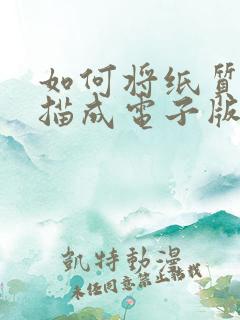 如何将纸质
描成电子版
凱特動漫
未经同意禁止转载